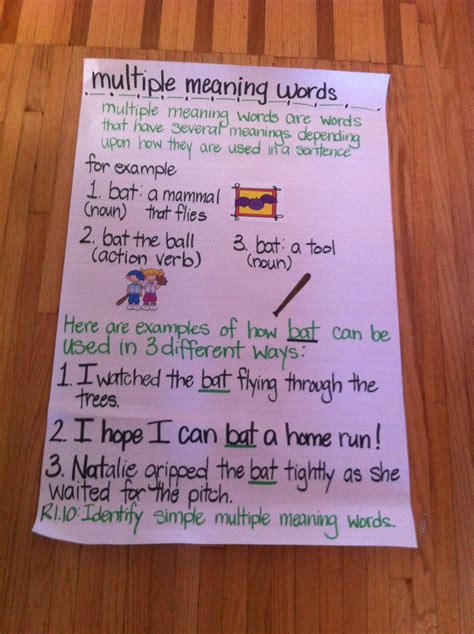 multiple meaning words
multiple meaning words are words
that have several meanings depending
upon how they are used in a sentence
for example
1. bat: a mammal
(noun) that flies
2. bat the ball
(action verb)
3. bat: a tool
(noun)
Here are examples of how bat can be
used in 3 different ways:
1. I watched the bat flying through the
trees.
2. I hope I can bat a home run!
3. Natalie gripped the bat tightly as she
waited for the pitch.
R1.10: Identify simple multiple meaning words.